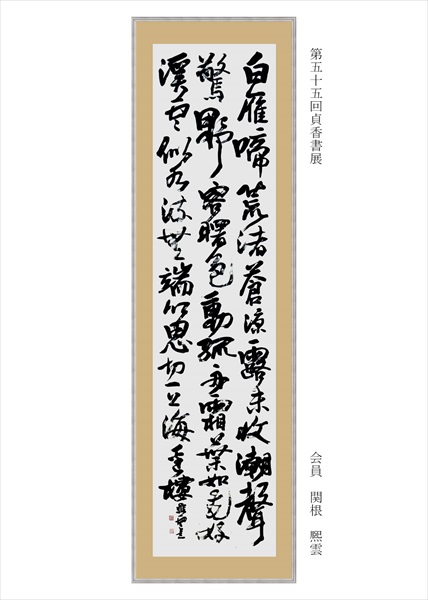 第五十五回貞香書展
会員 関根 熙雲
白雁啼荒渚蒼涼露未收潮聲
驚野客曙色動孤舟霜葉如好
溪雲似水流無端思切一上海樓